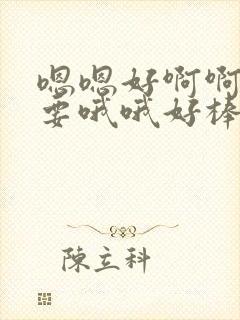 嗯嗯好啊啊
要哦哦好棒
陳立科